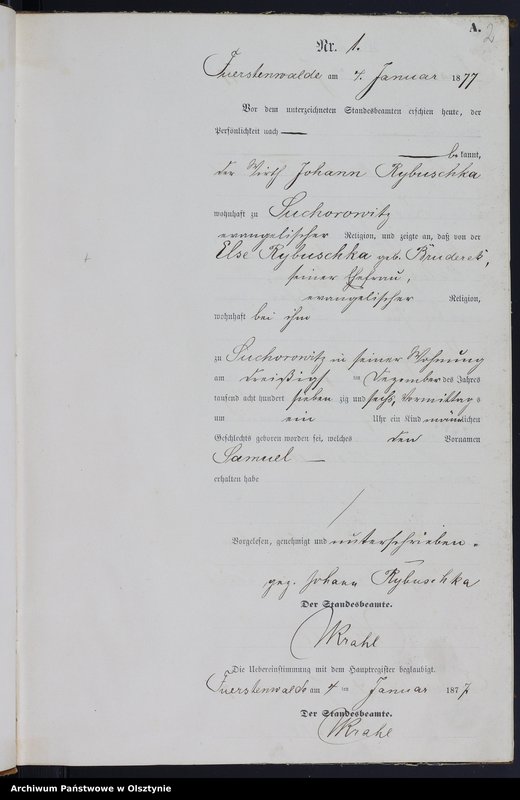 A.
2
Nr. 1.
Fuerstenwalde am 4. Januar 1877
Vor dem unterzeichneten Standesbeamten erschien heute, der
Persönlichkeit nach —
— bekannt,
der Wirth Johann Rybuschka
wohnhaft zu Suchorowitz
evangelischer Religion, und zeigte an, daß von der
Else Rybuschka geb. Bruderek,
seiner Ehefrau,
evangelischer Religion,
wohnhaft bei ihm
zu Suchorowitz in seiner Wohnung
am dreißigst im Dezember des Jahres
tausend acht hundert sieben zig und sechs, Vormittags
um ein Uhr ein Kind männlichen
Geschlechts geboren worden sei, welches den Vornamen
Samuel —
erhalten habe
Vorgelesen, genehmigt und unterschrieben.
gez. Johann Rybuschka
Der Standesbeamte.
Krahl
Die Uebereinstimmung mit dem Hauptregister beglaubigt.
Fuerstenwalde am 4 ten Januar 1877
Der Standesbeamte.
Krahl
Archiwum Państwowe w Olsztynie